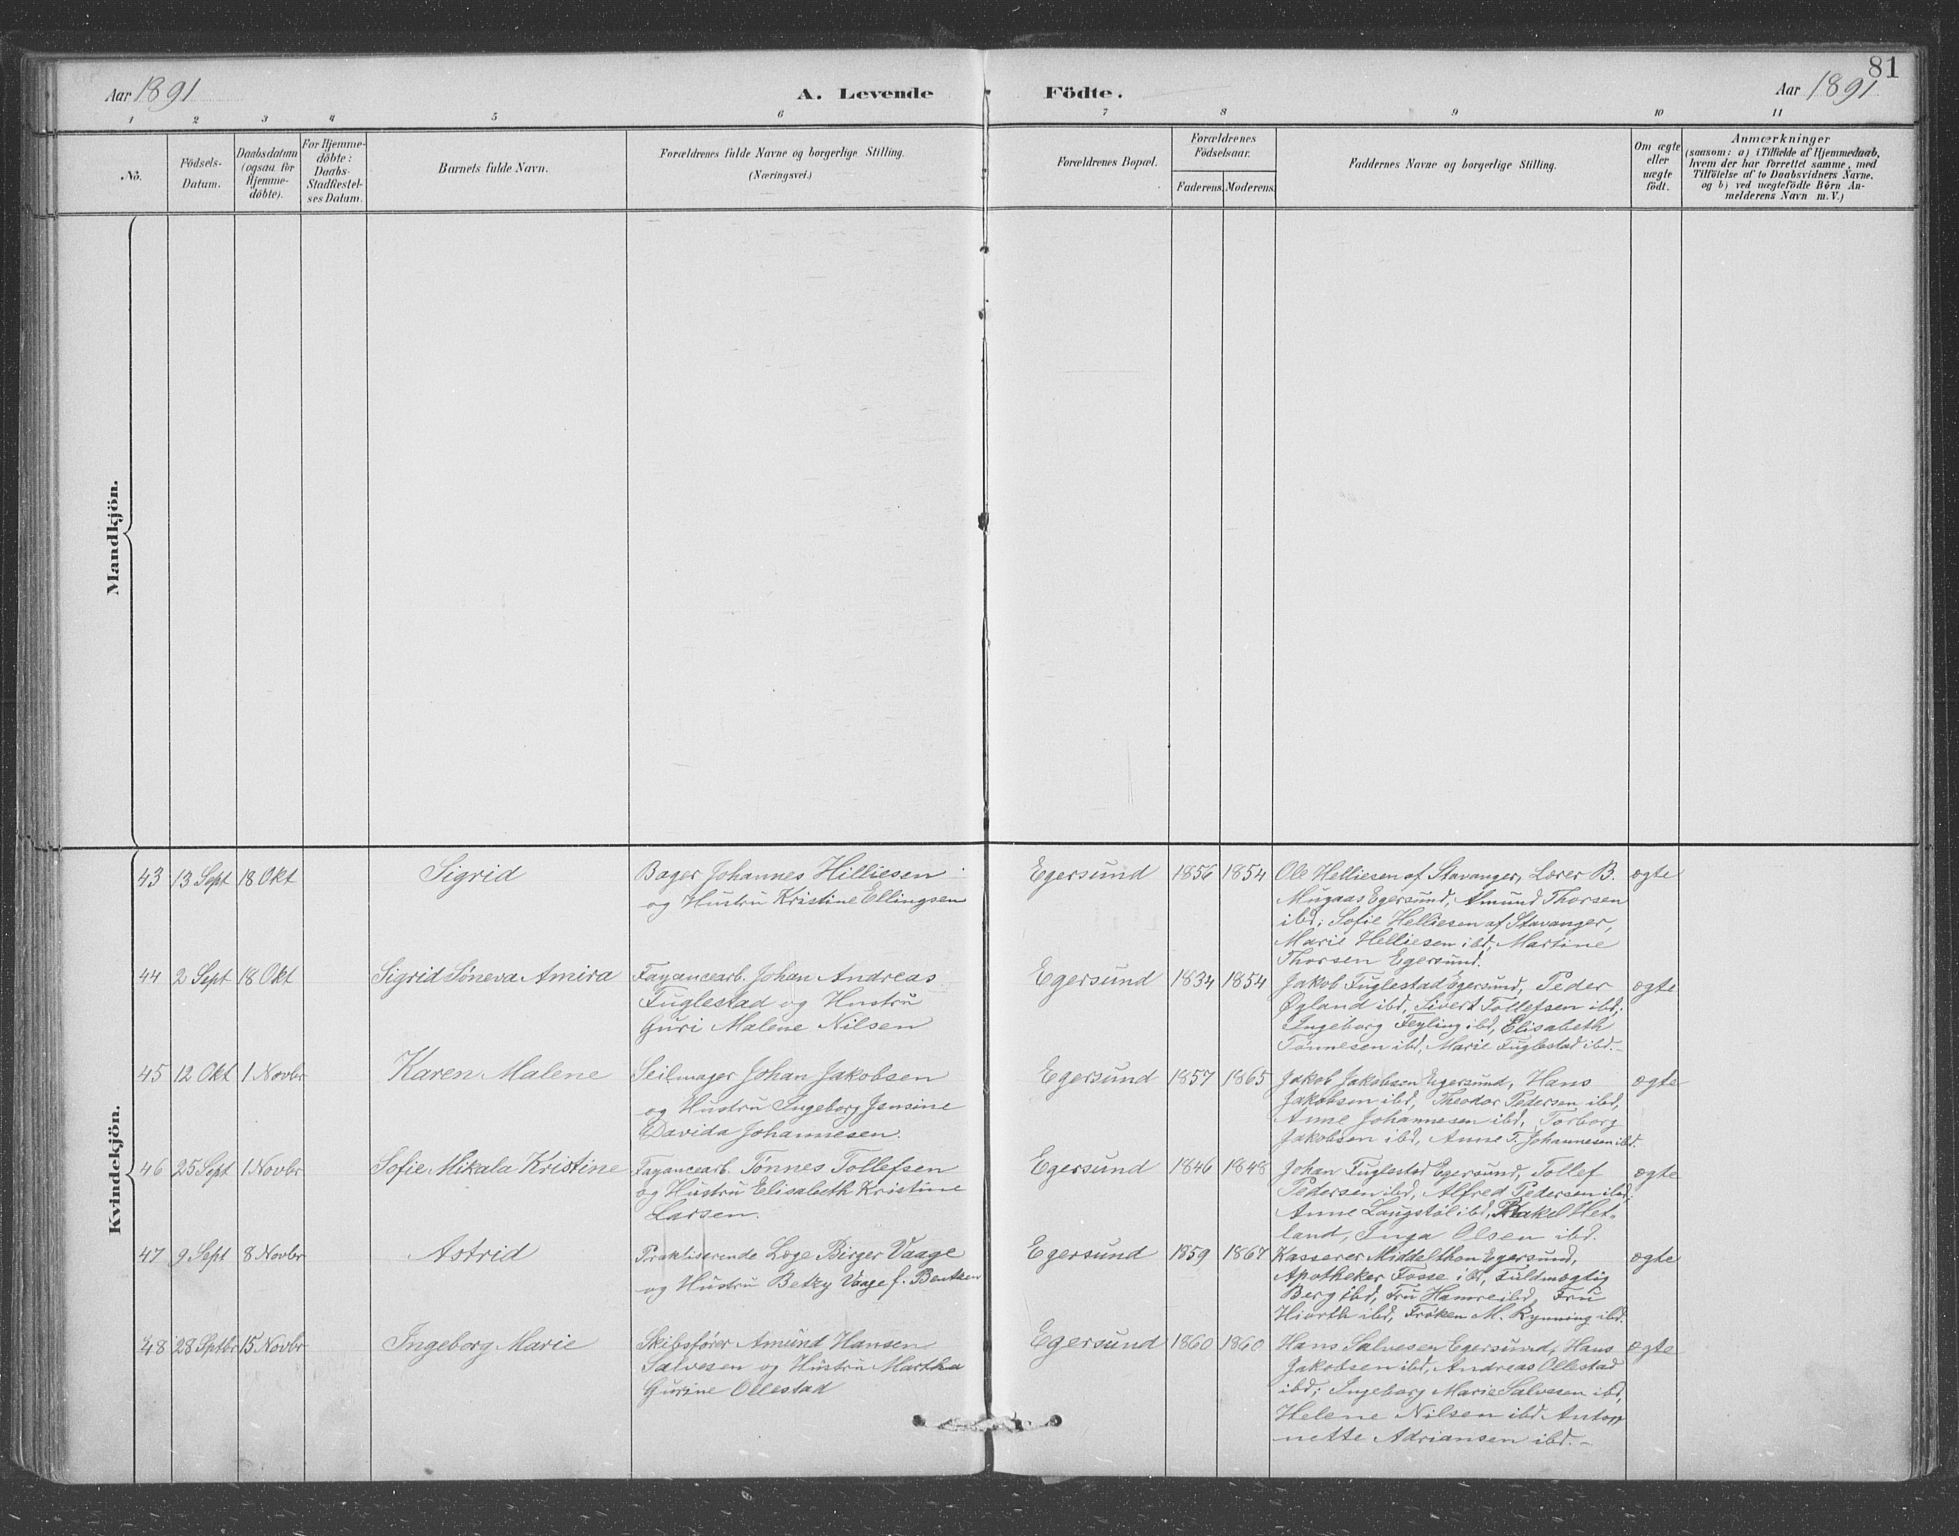 81
Aar 1891 A. Levende Födte. Aar 1891
1 2 3 4 5 6 7 8 9 10 11
No.
Födsels-
Datum.
Daabsdatum
(ogsaa for
Hjemme-
döbte).
For Hjemme-
döbte:
Daabs-
Stadfæstel-
ses Datum.
Barnets fulde Navn.
Forældrenes fulde Navne og borgerlige Stilling.
(Næringsvei.)
Forældrenes Bopæl.
Forældrenes
Födselsaar.
Faderens. Moderens.
Faddernes Navne og borgerlige Stilling.
Om ægte
eller
uægte
födt.
Anmærkninger
(saasom: a) i Tilfælde af Hjemmedaab,
hvem der har forrettet samme, med
Tilföielse af to Daabsvidners Navne,
og b) ved uægtefödte Börn An-
melderens Navn m. V.)
Mandkjön.
Kvindekjön.
43 13 Sept 18 Okt Sigrid
Bager Johannes Hilliesen
og Hustru Kristine Ellingsen
Egersund 1856 1854
Ole Helliesen af Stavanger, Lærer B.
Mugaas Egersund, Amund Thorsen
ibd, Sofie Helliesen af Stavanger,
Marie Helliesen ibd, Martine
Thorsen Egersund.
ægte
44 2 Sept 18 Okt Sigrid Søneva Amira
Fayancearb. Johan Andreas
Fuglestad og Hustru
Guri Malene Nilsen
Egersund 1834 1854
Jakob Fuglestad Egersund, Peder
Øgland ibd, Sivert Tollefsen ibd,
Ingeborg Feyling ibd, Elisabeth
Tønnesen ibd, Marie Fuglestad ibd.-
ægte
45 12 Okt 1 Novbr Karen Malene
Seilmager Johan Jakobsen
og Hustru Ingeborg Jensine
Davida Johannesen.
Egersund 1857 1865
Jakob Jakobsen Egersund, Hans
Jakobsen ibd, Theodor Pedersen ibd,
Anne Johannesen ibd, Torborg
Jakobsen ibd, Anne T. Johannesen ibd.
ægte
46 25 Sept 1 Novbr Sofie Mikala Kristine
Fayancearb. Tønnes Tollefsen
og Hustru Elisabeth Kristine
Larsen.
Egersund 1846 1848
Johan Fuglestad Egersund, Tollef
Pedersen ibd, Alfred Pedersen ibd,
Anne Langstøl ibd, Rakel Het-
land, Inga Olsen ibd.
ægte
47 9 Sept 8 Novbr Astrid
Praktiserende Læge Birger Vaage
og Hustru Betzy Vaage f. Bentzen
Egersund 1859 1867
Kasserer Middelthon Egersund,
Apotheker Fosse ibd, Fuldmægtig
Berg ibd, Fru Hamre ibd, Fru
Hiorth ibd, Frøken M. Rynning ibd.
ægte
48 28 Sptbr 15 Novbr Ingeborg Marie
Skibsfører Amund Hansen
Salvesen og Hustru Martha
Gurine Ollestad
Egersund 1860 1860
Hans Salvesen Egersund, Hans
Jakobsen ibd, Andreas Ollestad
ibd; Ingeborg Marie Salvesen ibd,
Helene Nilsen ibd Anton
nette Adriansen ibd.-
ægte